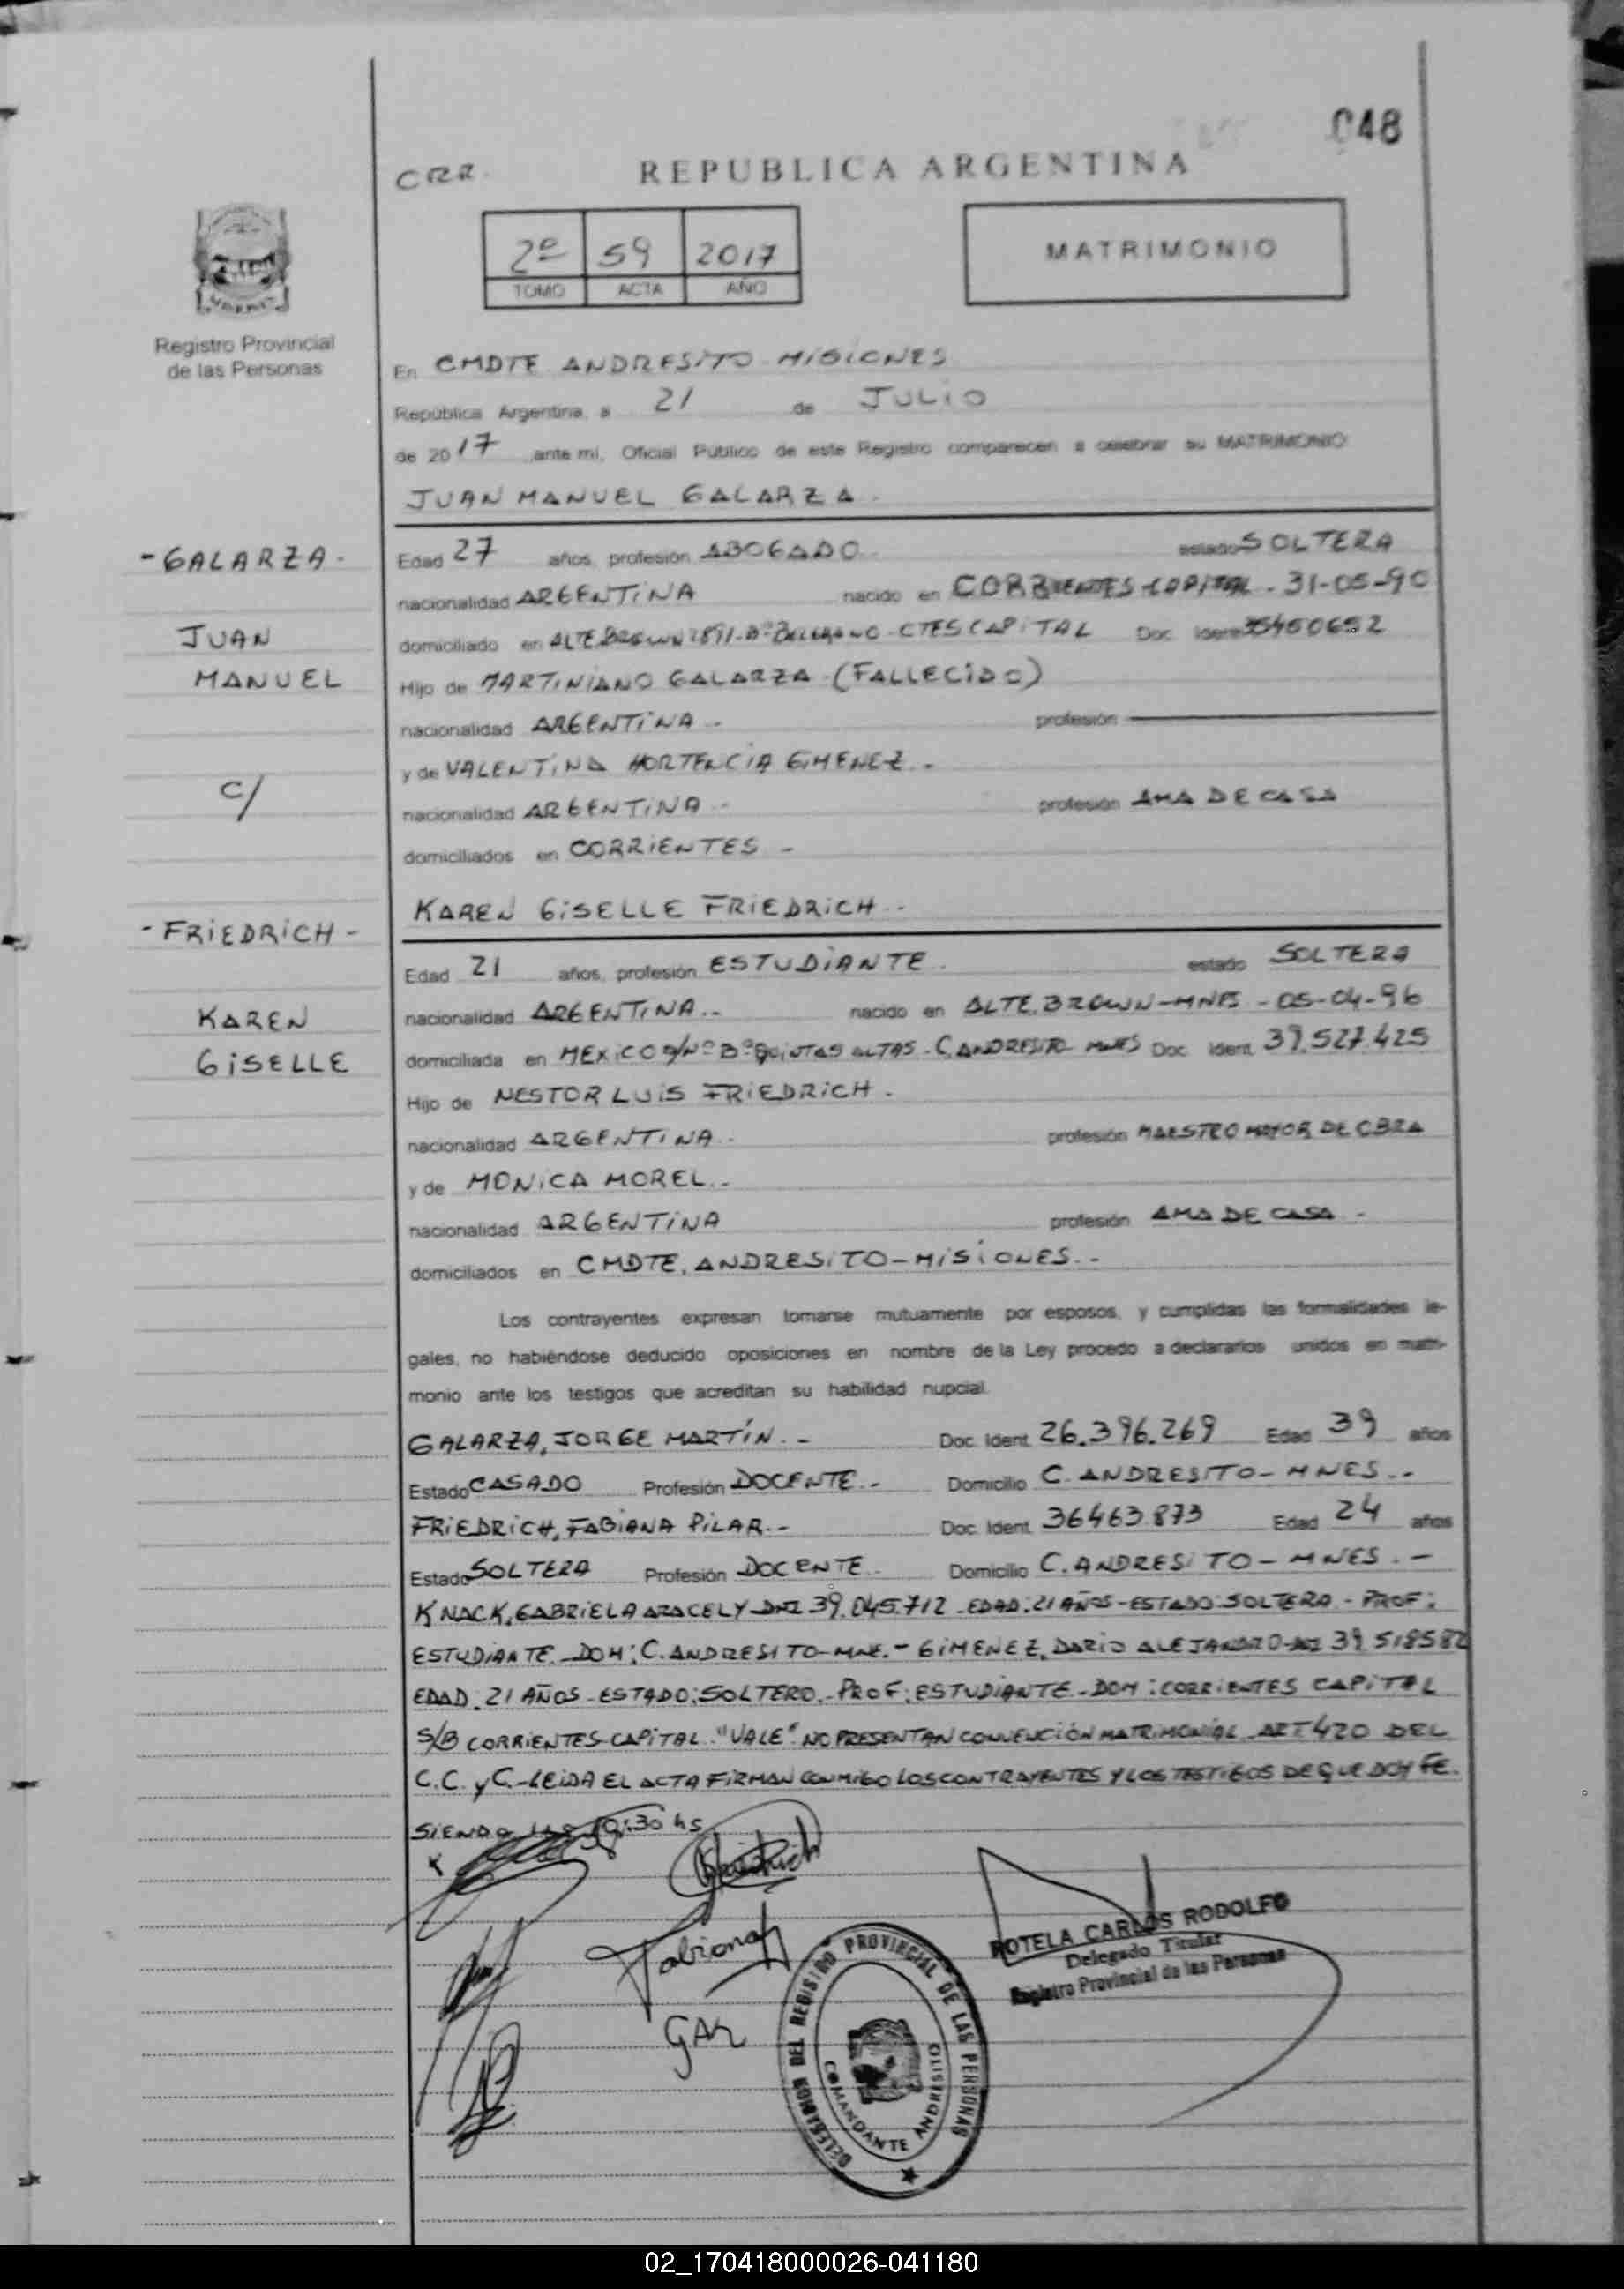 048
CRR.
REPUBLICA ARGENTINA
2º 59 2017
TOMO ACTA AÑO
MATRIMONIO
Registro Provincial
de las Personas
En CMDTE. ANDRESITO - MISIONES
República Argentina, a 21 de JULIO
de 2017 ,ante mí, Oficial Público de este Registro comparecen a celebrar su MATRIMONIO
JUAN MANUEL GALARZA.
-GALARZA-
JUAN
MANUEL
C/
-FRIEDRICH-
KAREN
GISELLE
Edad 27 años, profesión ABOGADO estado SOLTERA
nacionalidad ARGENTINA nacido en CORRIENTES CAPITAL - 31-05-90
domiciliado en ALTE BROWN 2891-Bº BELGRANO-CTES CAPITAL Doc. Ident.
Hijo de MARTINIANO GALARZA - (FALLECIDO)
nacionalidad ARGENTINA - profesión
y de VALENTINA HORTENCIA GIMENEZ.-
nacionalidad ARGENTINA - profesión AMA DE CASA
domiciliados en CORRIENTES -
KAREN GISELLE FRIEDRICH.-
Edad 21 años, profesión ESTUDIANTE. estado SOLTERA
nacionalidad ARGENTINA.- nacido en ALTE. BROWN-MNES - 05-04-96
domiciliada en MEXICO S/Nº Bº QUINTAS ALTAS - C. ANDRESITO MNES Doc. Ident. 39.527.425
Hijo de NESTOR LUIS FRIEDRICH.
nacionalidad ARGENTINA.- profesión MAESTRO MAYOR DE OBRA
y de MONICA MOREL.-
nacionalidad ARGENTINA profesión AMA DE CASA -
domiciliados en CMDTE. ANDRESITO-MISIONES.-
Los contrayentes expresan tomarse mutuamente por esposos, y cumplidas las formalidades le-
gales, no habiéndose deducido oposiciones en nombre de la Ley procedo a declararlos unidos en matri-
monio ante los testigos que acreditan su habilidad nupcial.
GALARZA, JORGE MARTÍN.- Doc. Ident. 26.396.269 Edad 39 años
Estado CASADO Profesión DOCENTE.- Domicilio C. ANDRESITO-MNES.-
FRIEDRICH, FABIANA PILAR.- Doc. Ident. 36463.873 Edad 24 años
Estado SOLTERA Profesión DOCENTE. Domicilio C. ANDRESITO-MNES.-
KNACK, GABRIELA ARACELY DNI 39.045.712 - EDAD: 21 AÑOS-ESTADO: SOLTERA - PROF:
ESTUDIANTE. DOM: C. ANDRESITO-MNE.- GIMENEZ, DARIO ALEJANDRO-DNI 39.518582
EDAD: 21 AÑOS-ESTADO: SOLTERO.-PROF: ESTUDIANTE-DOM: CORRIENTES CAPITAL
S/B CORRIENTES CAPITAL. "VALE". NO PRESENTAN CONVENCIÓN MATRIMONIAL ART 420 DEL
C.C. y C.-LEIDA EL ACTA FIRMAN CONMIGO LOS CONTRAYENTES Y LOS TESTIGOS DE QUE DOY FE.
SIENDO LAS hs
Friedrich
Fabiana
GAK
ROTELA CARLOS RODOLFO
Delegado Titular
Registro Provincial de las Personas
DELEGACION DEL REGISTRO PROVINCIAL DE LAS PERSONAS
COMANDANTE ANDRESITO
02_170418000026-041180